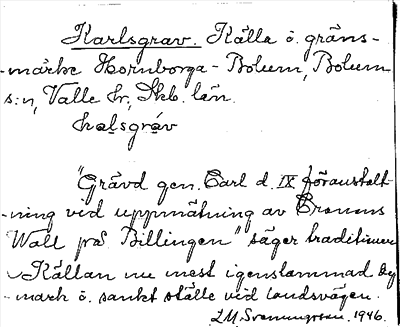 Karlsgrav. Källa ö. gräns-
-märke Hornborga - Bolum, Bolum
s:n, Valle hr, Skb. län.
kalsgräv
"Grävd gen. Carl d. IX föranstalt-
-ning vid uppmätning av Cronans
Wall på Billingen" säger traditionen
Källan nu mest igenslammad
mark ö. sankt ställe vid landsvägen.
1946.